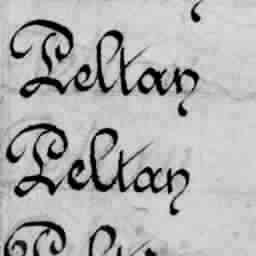 Peltan
Peltan